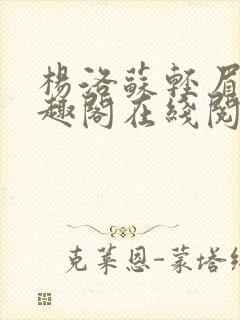 楊洛蘇輕眉
趣閣在綫閱
克莱恩-蒙塔